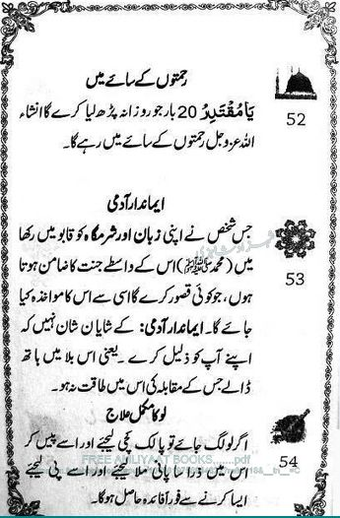 رحمتوں کے سائے میں
یَامُقْتَدِرُ 20 بار جو روزانہ پڑھ لیا کرے گا انشاء
52
اللہ عزوجل رحمتوں کے سائے میں رہے گا۔
ایماندار آدمی
جس شخص نے اپنی زبان اور شرمگاہ کو قابو میں رکھا
میں (محمد ﷺ) اس کے واسطے جنت کا ضامن ہوتا
53
ہوں، جو کوئی قصور کرے گا اسی سے اس کا مواخذہ کیا
جائے گا۔ ایماندار آدمی: کے شایان شان نہیں کہ
اپنے آپ کو ذلیل کرے۔ یعنی اس بلا میں ہاتھ
ڈالے جس کے مقابلہ کی اس میں طاقت نہ ہو۔
لو کا مکمل علاج
اگر لو لگ جائے تو پالک کچی لیجئے اور اسے پیس کر
54
FREE AMLIYAAT BOOKS pdf
اس میں ذرا سا پانی ملا لیجئے اور اسے پی لیجئے
ایسا کرنے سے فوراً فائدہ حاصل ہوگا۔